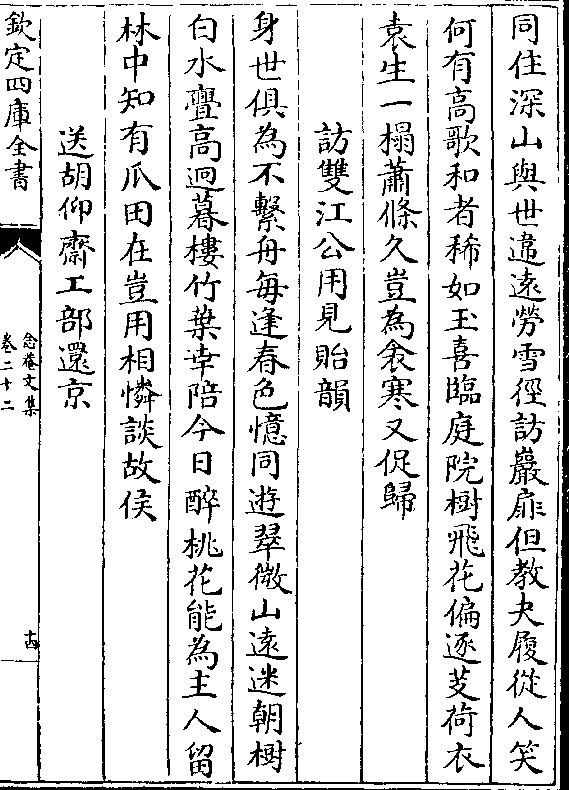 同住深山與世違遠勞雪徑訪巖扉但教夬履從人笑
何有高歌和者稀如玉喜臨庭院樹飛花偏逐芰荷衣
袁生一榻蕭條久豈為衾寒又促歸
訪雙江公用見貽韻
身世俱為不繫舟每逢春色憶同遊翠微山遠迷朝樹
白水疊高迥暮樓竹葉幸陪今日醉桃花能為主人留
林中知有瓜田在豈用相憐談故侯
送胡仰齋工部還京
欽定四庫全書
念菴文集
卷二十二
十四